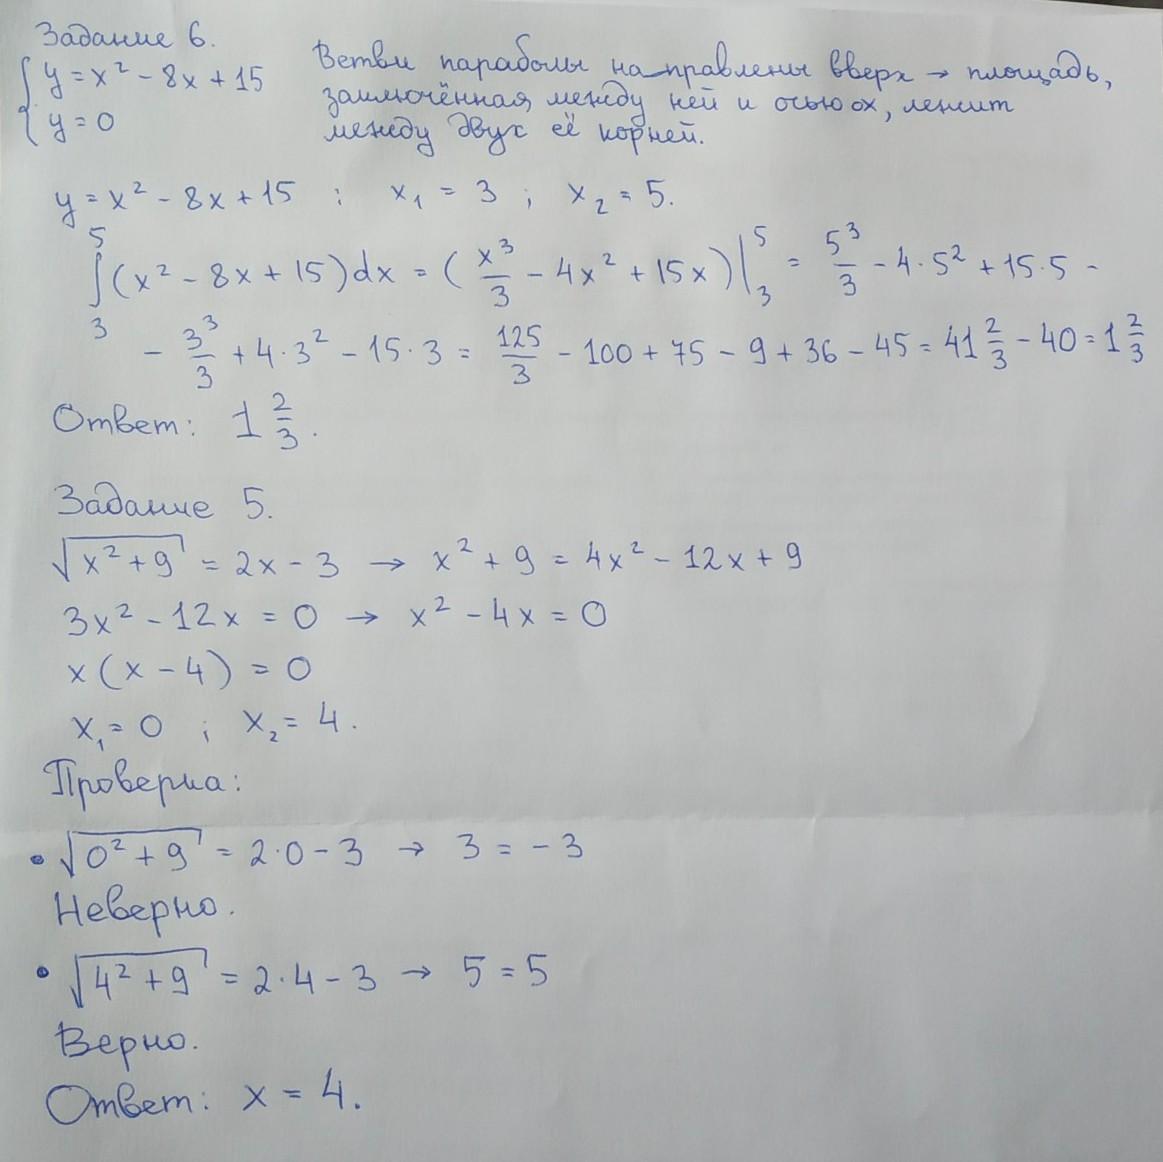 Задание 6.
{ y = x² - 8x + 15
y = 0
Ветви параболы направлены вверх → площадь,
заключённая между ней и осью ох, лежит
между двух её корней.
y = x² - 8x + 15 ; x₁ = 3 ; x₂ = 5.
∫₃⁵ (x² - 8x + 15)dx = (x³/3 - 4x² + 15x)|₃⁵ = 5³/3 - 4·5² + 15·5 -
- 3³/3 + 4·3² - 15·3 = 125/3 - 100 + 75 - 9 + 36 - 45 = 41 2/3 - 40 = 1 2/3
Ответ: 1 2/3.
Задание 5.
√(x² + 9) = 2x - 3 → x² + 9 = 4x² - 12x + 9
3x² - 12x = 0 → x² - 4x = 0
x(x - 4) = 0
x₁ = 0 ; x₂ = 4.
Проверка:
• √(0² + 9) = 2·0 - 3 → 3 = -3
Неверно.
• √(4² + 9) = 2·4 - 3 → 5 = 5
Верно.
Ответ: x = 4.